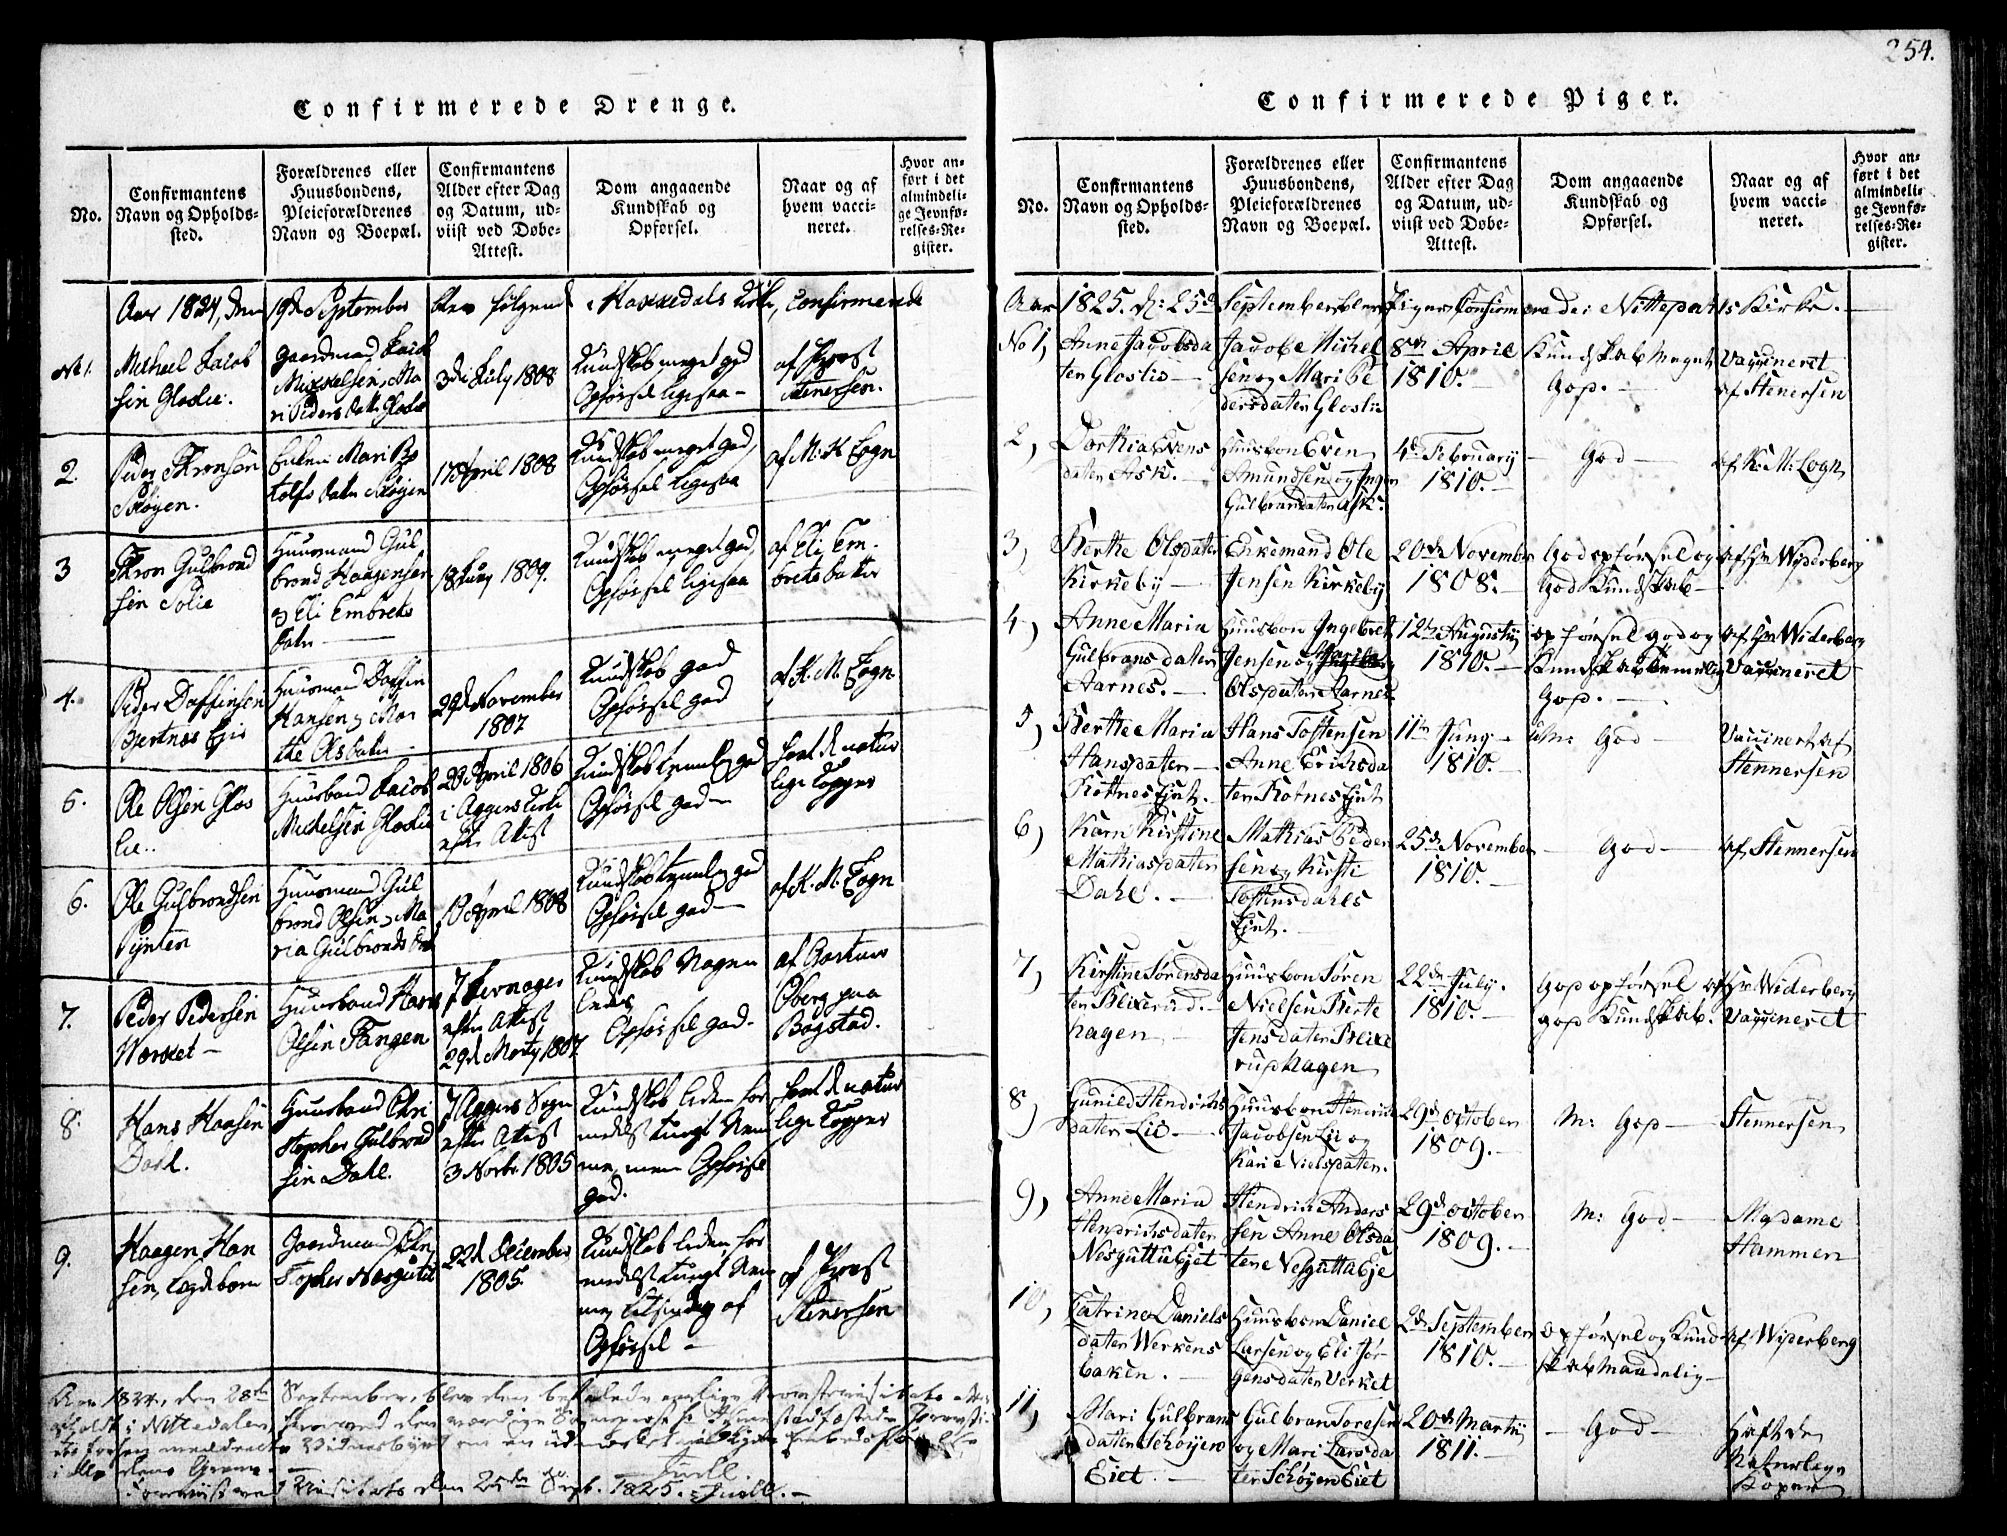 254.
Confirmerede Drenge.
No.
Confirmantens
Navn og Opholds-
sted.
Forældrenes eller
Huusbondens,
Pleieforældrenes
Navn og Boepæl.
Confirmantens
Alder efter Dag
og Datum, ud-
viist ved Døbe-
Attest.
Dom angaaende
Kundskab og
Opførsel.
Naar og af
hvem vacci-
neret.
Hvor an-
ført i det
almindeli-
ge Jevnfø-
relses-Re-
gister.
Aar 1824, den 19de September blev følgende i Kirke, Confirmerede
No 1.
Michael Jacob
sen Gloslie.
Gaardmand Jacob
Mikkelsen, Ma
ri Peders Datt. Gloslie
3de July 1808
Kundskab meget god
Opførsel ligesaa -
af Provst
Stenersen.
2.
Peder Thronsen
Skøyen.
Enken Mari Bo
tolfs Datter Skøyen
17 April 1808
Kundskab meget god,
Opførsel ligesaa
af K. M. Logn
3
Thron Gulbrand
sen Solie
Huusmand Gul
brand Haagensen
og Eli Embrets
Datter
18 Juny 1809.
Kundskab meget god,
Opførsel ligesaa
af Eli Em-
bretsdatter
4.
Peder Daffinsen
Bjertnæs Eje
Huusmand Daffin
Hansen og Mar
the Olsdatter
29de November
1807
Kundskab god
Opførsel god
af K. M. Logn
5.
Ole Olsen Glos
lie.
Huusbond Jacob
Michelsen Gloslie
20 April 1806
i Aggers Kirke
efter Attest
Kundskab temmelig god
Opførsel god -
havt de natur
lige Kopper
6.
Ole Gulbrandsen
Pynten
Huusmand Gul
brand Olsen og Ma
ria Gulbrands Datt
10 April 1808
Kundskab temmelig god
Opførsel god -
af K. M. Logn
7.
Peder Pedersen
Wærket -
Huusbond Hans
Olsen Tangen
efter Attest
29de Marty 1807
Kundskab Nogen
ledes
Opførsel god -
af
Øberg paa
Bogstad.
8.
Hans Hansen
Dahl.
Huusbond Chri
stopher Gulbrand
sen Dahl.
i Aggers Sogn
efter Attest
3 Novbr. 1805
Kundskab liden for
medelst tungt Nem
me, men Opførsel
god.
havt de natur
lige Kopper
9.
Haagen Han
sen, Lægdebarn
Gaardmand Chri
stopher Næsgutu
22de December
1805.
Kundskab liden, for
medelst tungt Nem
me, af
Opførsel -
af Provst
Stenersen
Aar 1824, den 28de September, blev den
i Nittedalen,
25de Sept. 1825. Juell. -
Confirmerede Piger.
No.
Confirmantens
Navn og Opholds-
sted.
Forældrenes eller
Huusbondens,
Pleieforældrenes
Navn og Boepæl.
Confirmantens
Alder efter Dag
og Datum, ud-
viist ved Døbe-
Attest.
Dom angaaende
Kundskab og
Opførsel.
Naar og af
hvem vacci-
neret.
Hvor an-
ført i det
almindeli-
ge Jevnfø-
relses-Re-
gister.
Aar 1825. d: 25de September blev Piger Confirmerede i Nittedals Kirke.
No 1,
Anne Jacobsda
ter Gloslie
Jacob Michel
sen og Mari Pe
dersdater Gloslie
8de April
1810.
Kundskab Meget
God.
Vaccineret
af Stenersen
2,
Dorthia Evens
dater Ask.
Huusbon Even
Amundsen og Inger
Gulbransdater Ask.
4de February
1810.
God
af K: M: Logn
3,
Berthe Olsdater
Kirkeby
Enkemand Ole
Jensen Kirkeby
20de November
1808.
God opførsel og
God Kundskab
af Hr Widerberg
4,
Anne Maria
Gulbrans dater
Aarnes.
Huusbon Ingebret
Jensen og
Olsdater Aarnes
12te Augusty
1810.
opførsel god og
Kundskab temmelig
God.
af Hr Widerberg
Vaccineret
5,
Berthe Maria
Hansdater
Kottnes Ejet.
Hans Toftensen
Anne Erichsda
ter Kotnes Ejet
11te Juny
1810.
M: God
Vaccinert af
Stennersen
6,
Karn Kirstine
Mathiasdater
Dahl.
Mathias Peder
sen og Kirsti
Toftensdahls
Ejet.
25de November
1810.
God
af Stennersen
7,
Kirstine Sørensda
ter Blixerud
hagen
Huusbon Søren
Nielsen Berte
Jensdater Blixe
rudhagen
22de July.
1810.
God opførsel og
god Kundskab.
af Hr Widerberg
Vaccineret
8,
Gunild Hendrichs
dater Lie
Huusbon Hendrich
Jacobsen Lie og
Kari Nielsdater.
29de october
1809.
M: God
Stennersen
9,
Anne Maria
Hendrichsdater
Nesguttu Ejet
Hendrich Anders
sen Anne Olsda
ter Nesgutta Eje
29de october
1809.
M: God
Madame
Hammer
10,
Catrine Daniels
dater Werkens
baken.
Huusbon Daniel
Larsen og Eli Jør
gensdater Verket
2de September
1810.
opførsel og Kund
skab Maadelig
af Widerberg
11,
Mari Gulbrans
dater Schøyens
Eiet.
Gulbran Toresen
og Mari Larsda
ter Schøyen Eiet
20de Marty
1811.
God
Haft de
Naturlige
Koper